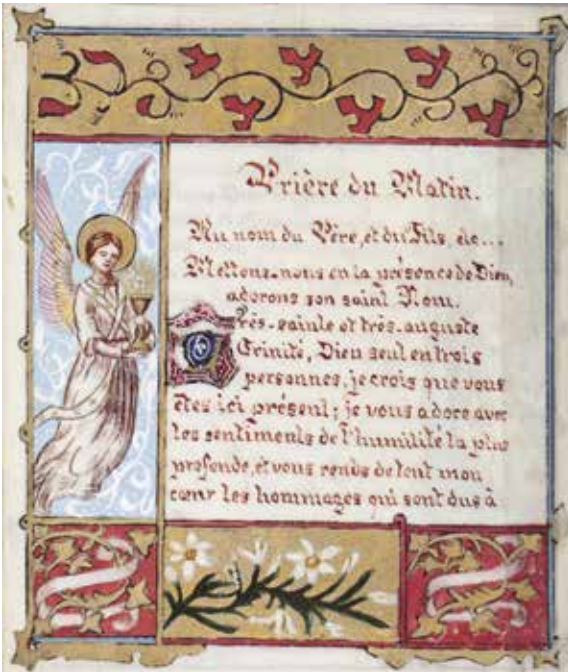 Prière du Matin.
Au nom du Père, et du Fils, etc...
Mettons-nous en la présence de Dieu,
adorons son saint Nom.
Très-sainte et très-auguste
Trinité, Dieu seul en trois
personnes, je crois que vous
êtes ici présent; je vous adore avec
les sentiments de l'humilité la plus
profonde, et vous rends de tout mon
cœur les hommages qui sont dus à